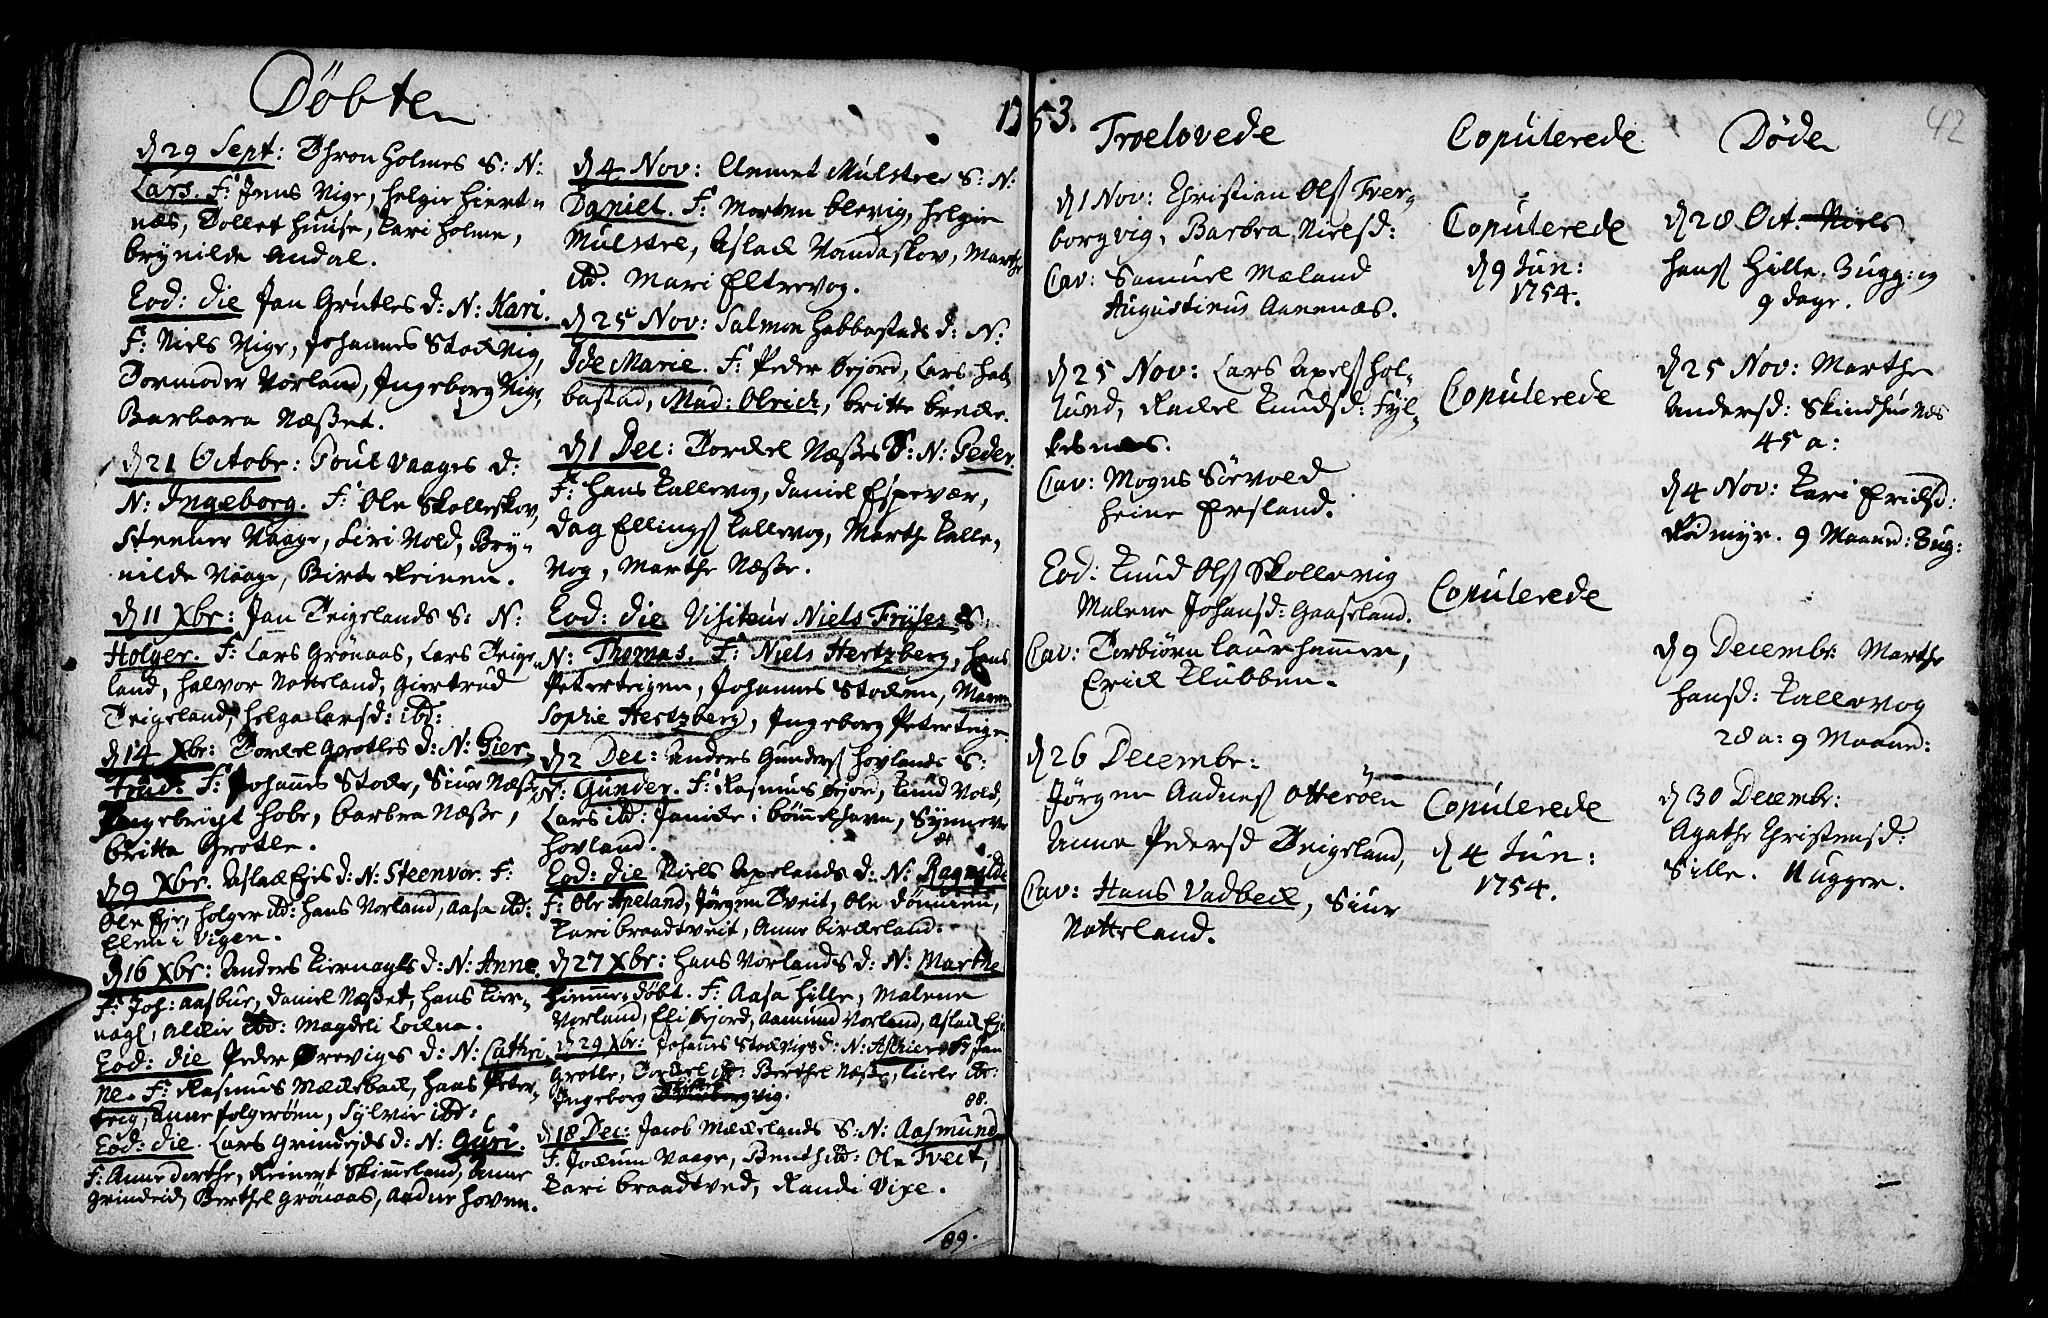 Døbte
d 29 Sept: Thron Holmes S: N:
Lars. F: Jens Vige, Helgie Hiert-
næs, Tollef Huuse, Kari Holme,
Brynilde Andal.
Eod: die Jan Grütles d: N: Kari.
F: Niels Vige, Johannes Stockvig,
Tormoder Vorland, Ingeborg Vige,
Barbara Næsset.
d 21 Octobr: Poul Vaages d:
N: Ingeborg. F: Ole Skolleskov,
Steener Vaage, Siri Vold, Bry-
nilde Vaage, Birte Reinen.
d 11 Xbr: Jan Teigelands S: N:
Holger. F: Lars Grønaas, Lars Teige-
land, Halvor Notteland, Giertrud
Teigeland, Helga Larsd: ibd:
d 14 Xbr: Torkel Grotles d: N: Gier-
trud. F: Johannes Stocke, Siur Næsse,
Ingebrigt Hobe, Barbra Næsse,
Britta Grotle.
d 9 Xbr. Aslack Ejes d: N: Steenvor. F:
Ole Eje, Holger ibd: Hans Vorland, Aasa ibd:
Elen i Vigen.
d 16 Xbr: Anders Kiernagels d: N: Anne.
F: Joh: Aasbue, Daniel Næsset, Hans Kier-
nagl, ibd: Magdeli
Eod: die Peder Ørevigs d: N: Cathri
ne. F: Rasmus Mækebak, Hans Peter-
teig, Anne Folgerøen, Sylvie ibd:
Eod: die. Lars Grindejds d: N: Guri.
F: Anne Dorthe, Reinert Skimmeland, Anne
Grindeid, Berthel Grønaas, Aadne Hoven.
d 4 Nov: Clemet Mulstre S: N:
Daniel. F: Morten Blevig, Helgie
Mulstre, Aslack Vandaskov, Marthe
ibd. Mari Eltrevog.
d 25 Nov: Salmon Habbastads d: N:
Ide Marie. F: Peder Øejord, Lars Hab
bastad, Mad: Olrich, Britte Brekke.
d 1 Dec: Torkel Næsses S: N: Peder.
F: Hans Kallevig, Daniel Espevær,
Dag Ellings Kallevog, Marthe Kalle-
vog, Marthe Næsse.
Eod: die. Visiteur Niels Friises S.
N: Thomas. F: Niels Hertzberg, Hans
Peterteigen, Johannes Stocken, Maren
Sophie Hertzberg, Ingeborg Peterteige
d 2 Dec: Anders Gunders Hovlands S:
N: Gunder. F: Rasmus Øejord, Knud Vold,
Lars ibd: Jannike i Bømmelhavn, Synneve
Hovland.
Eod: die Niels Apelands d: N: Ragnilde
F: Ole Apeland, Jørgen Tveit, Ole Dommen,
Kari Braadtveit, Anne Birkeland.
d 27 Xbr: Hans Vorlands d: N: Marthe
Hiemme-døbt. F: Aasa Hille, Malene
Vorland, Eli Øejord, Aamund Vorland, Aslack Eje
d 29 Xbr: Johannes Stockvigs d: N: F: Jan
Grotle, Torkel ibd: Berthel Næsse, ibd:
Ingeborg vig.
88.
d 18 Dec: Jacob Mækelands S: N: Aasmund
F: Jockum Vaage, Benth ibd: Ole Tveit,
Kari Braadtved, Randi Vixe.
89.
1753.
42
Troelovede
d 1 Nov: Christian Ols Tver-
borgvig, Barbra Nielsd:
Cav: Samuel Mæland
Augustinus Aarenæs.
d 25 Nov: Lars Apels Hol-
lund, Rackel Knudsd: Fyl-
kesnæs.
Cav: Mogns Sörvold
Heine Ersland.
Eod: Knud Ols Skollevig
Malene Johansd: Gaaseland.
Cav: Torbiörn Laurhammer,
Erick Klubben.
d 26 Decembr:
Jörgen Aadnes Otterøen
Anna Pedersd Teigeland,
Cav: Hans Vadbeck, Siur
Notteland.
Copulerede
Copulerede
d 9 Jun:
1754.
Copulerede
Copulerede
Copulerede
d 4 Jun:
1754.
Døde
d 28 Oct. Niels
Hans Hille. 3 ugg: og
9 dage.
d 25 Nov: Marthe
Andersd: Skindhuenæs
45 a:
d 4 Nov: Kari Ericksd:
Rødmyr. 9 Maaned: 3 ug:
d 9 Decembr: Marthe
Hansd: Kallevog
28 a: 9 Maaned:
d 30 Decembr:
Agathe Christensd:
Sille. 11 ugger.